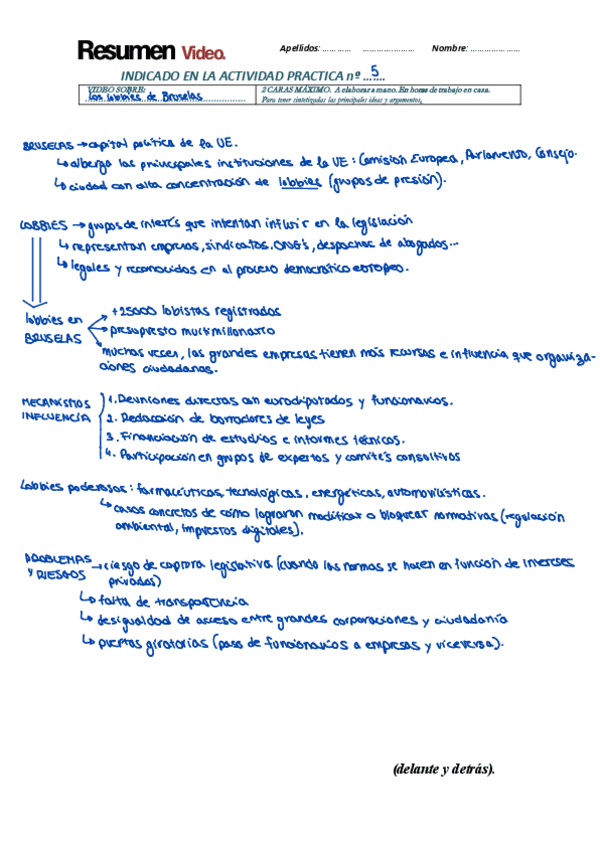 Resumen Video.
Apellidos: ............ ...................... Nombre: .....................
INDICADO EN LA ACTIVIDAD PRACTICA nº ...5....
VIDEO SOBRE:
Los lobbies de Bruselas
2 CARAS MÁXIMO. A elaborar a mano. En horas de trabajo en casa.
Para tener sintetizadas las principales ideas y argumentos.
BRUSELAS → capital política de la UE.
↳ alberga las principales instituciones de la UE: Comisión Europea, Parlamento, Consejo.
↳ ciudad con alta concentración de lobbies (grupos de presión).
LOBBIES → grupos de interés que intentan influir en la legislación
↳ representan empresas, sindicatos, ONG's, despachos de abogados...
↳ legales y reconocidos en el proceso democrático europeo.
lobbies en BRUSELAS
→ +25000 lobistas registrados
→ presupuesto multimillonario
→ muchas veces, las grandes empresas tienen más recursos e influencia que organiza-
ciones ciudadanas.
MECANISMOS INFLUENCIA
1. Reuniones directas con eurodiputados y funcionarios.
2. Redacción de borradores de leyes
3. Financiación de estudios e informes técnicos.
4. Participación en grupos de expertos y comités consultivos
Lobbies poderosos: farmacéuticas, tecnológicas, energéticas, automovilísticas.
↳ casos concretos de cómo lograron modificar o bloquear normativas (regulación
ambiental, impuestos digitales).
PROBLEMAS Y RIESGOS → riesgo de captura legislativa (cuando las normas se hacen en función de intereses
privados)
↳ falta de transparencia
↳ desigualdad de acceso entre grandes corporaciones y ciudadanía
↳ puertas giratorias (paso de funcionarios a empresas y viceversa).
(delante y detrás).